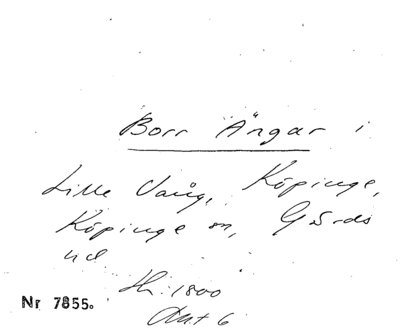 Borr Ängar i
Lille Vång, Köpinge,
Köpinge sn, Gärds
hd
1800
Nr 7855.